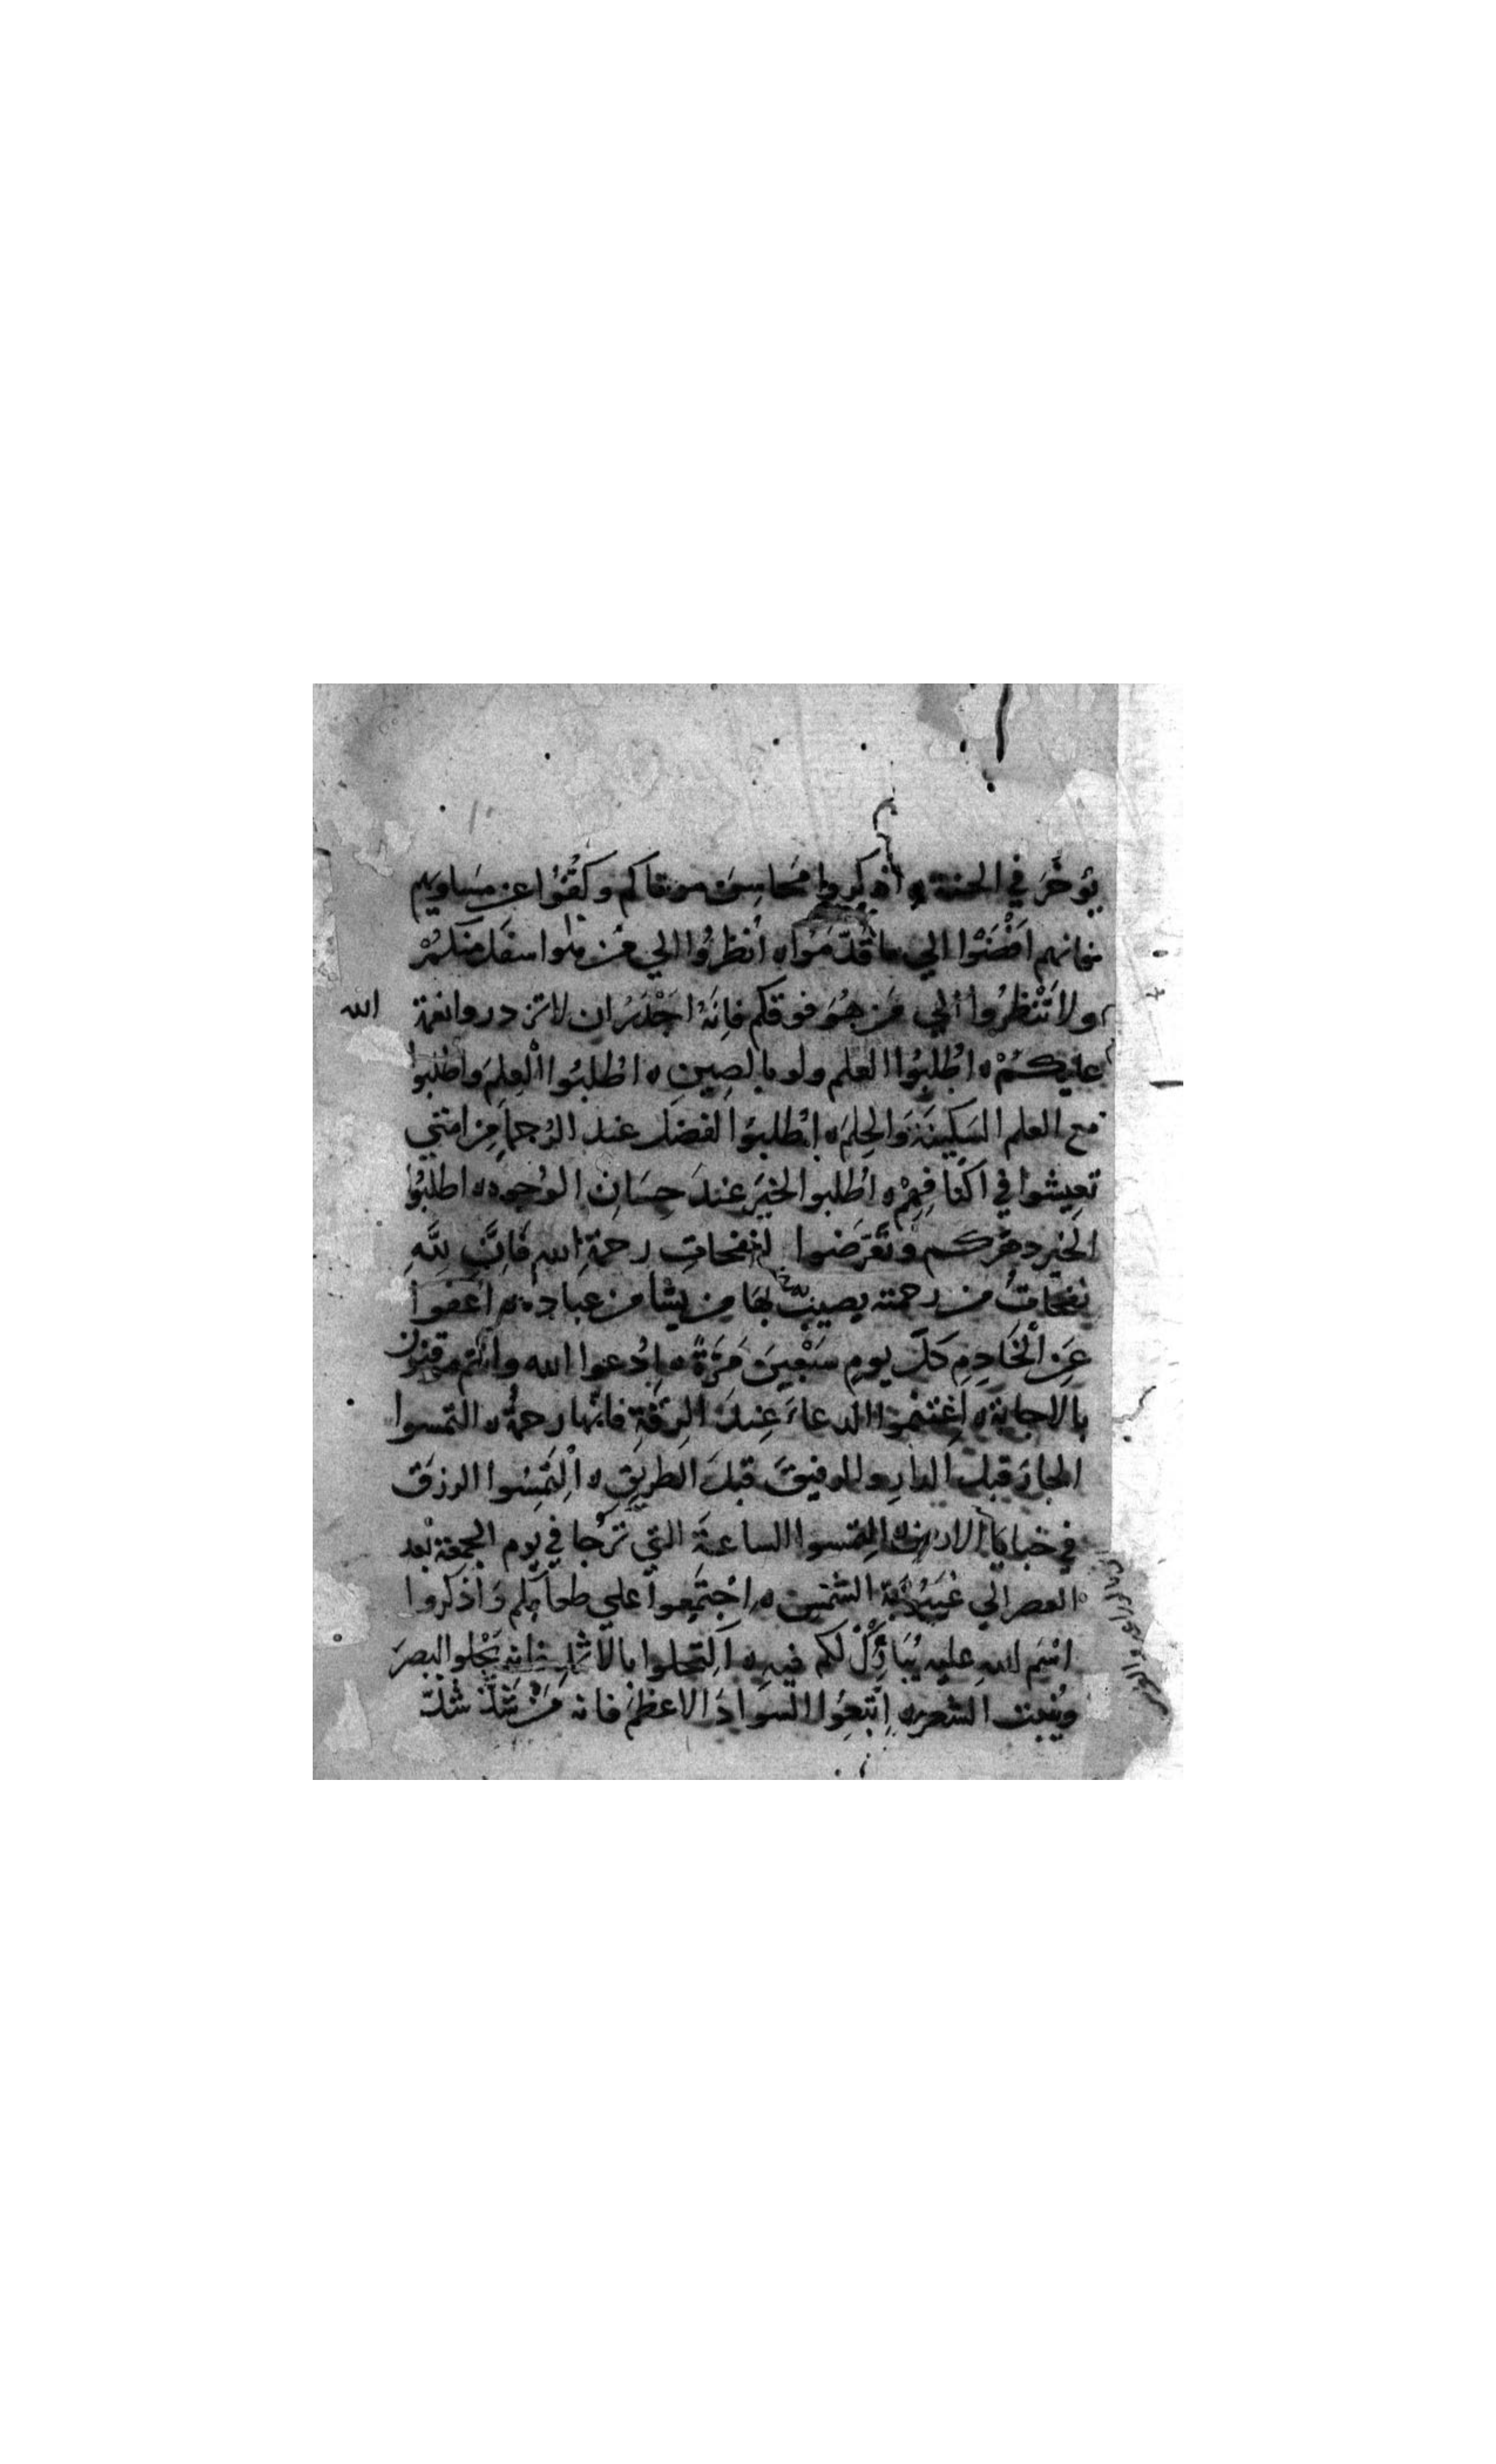 يُؤخَّرَ في الجنة ه اذكِروا محَاسِنَ موتاكم وكُفُّوا عن مسَاويهم
فانهم اَفْضَوْا الي ما قَدّمَوُا ه اُنظرُوا الي مَن هوا سفَل منكُمْ
ولا تَنْظرُوا الي مَن هُوَ فوقكم فاِنَهُ اجْدَرُ ان لا تزدروا نعمة
الله
عليكُمْ ه اُطْلبُوا العلم ولو بالصِينِ ه اطُلبُوا الْعِلمَ واطلبُوا
مع العلم السَكِينَةَ وَالحِلمَ ه اُطلبوُا الفضل عند الرُحماءِ مِن امتي
تعِيشوا في اكنافِهِمْ ه اطُلبوا الخيَر عندَ حِسَانِ الوُجوه ه اطلبُوا
الخير دهرَكم وتَعَرَضوا لنفحاتِ رحمَةِ الله فَانَّ لِلّهِ
نفحَاتٌ من رحمته يصيبُ بهَا من يشا من عباده ه اعفوا
عَنِ الْخَادِمِ كلَّ يومٍ سَبْعِينَ مَرَةً ه ادُعوا الله وانتم موقنون
بالاجابة ه اِغتنمُوا الدعاءَ عِندَ الرِقةِ فانَها رحمةٌ ه التمسوا
الجارَ قبلَ الدارِ والرفيقَ قبلَ الطريقِ ه اِلْتَمِسُوا الرزقَ
في خبايا الارض ه التمسوا الساعةَ التي تُرجا في يوم الجمعة بَعد
العصر الي غَيْبُوبَة الشمسِ ه اِجْتَمِعواَ علي طعامِكم وَاذكروا
اسْمَ اللهِ عليه يُبَارَكْ لكم فيه ه اكتحلوا بالاثمد فانه يَجْلو البصرَ
ويُنبت الشعر ه اِتبَعُوا السوادَ الاعظمَ فانه مَنْ شَذّ شذّ